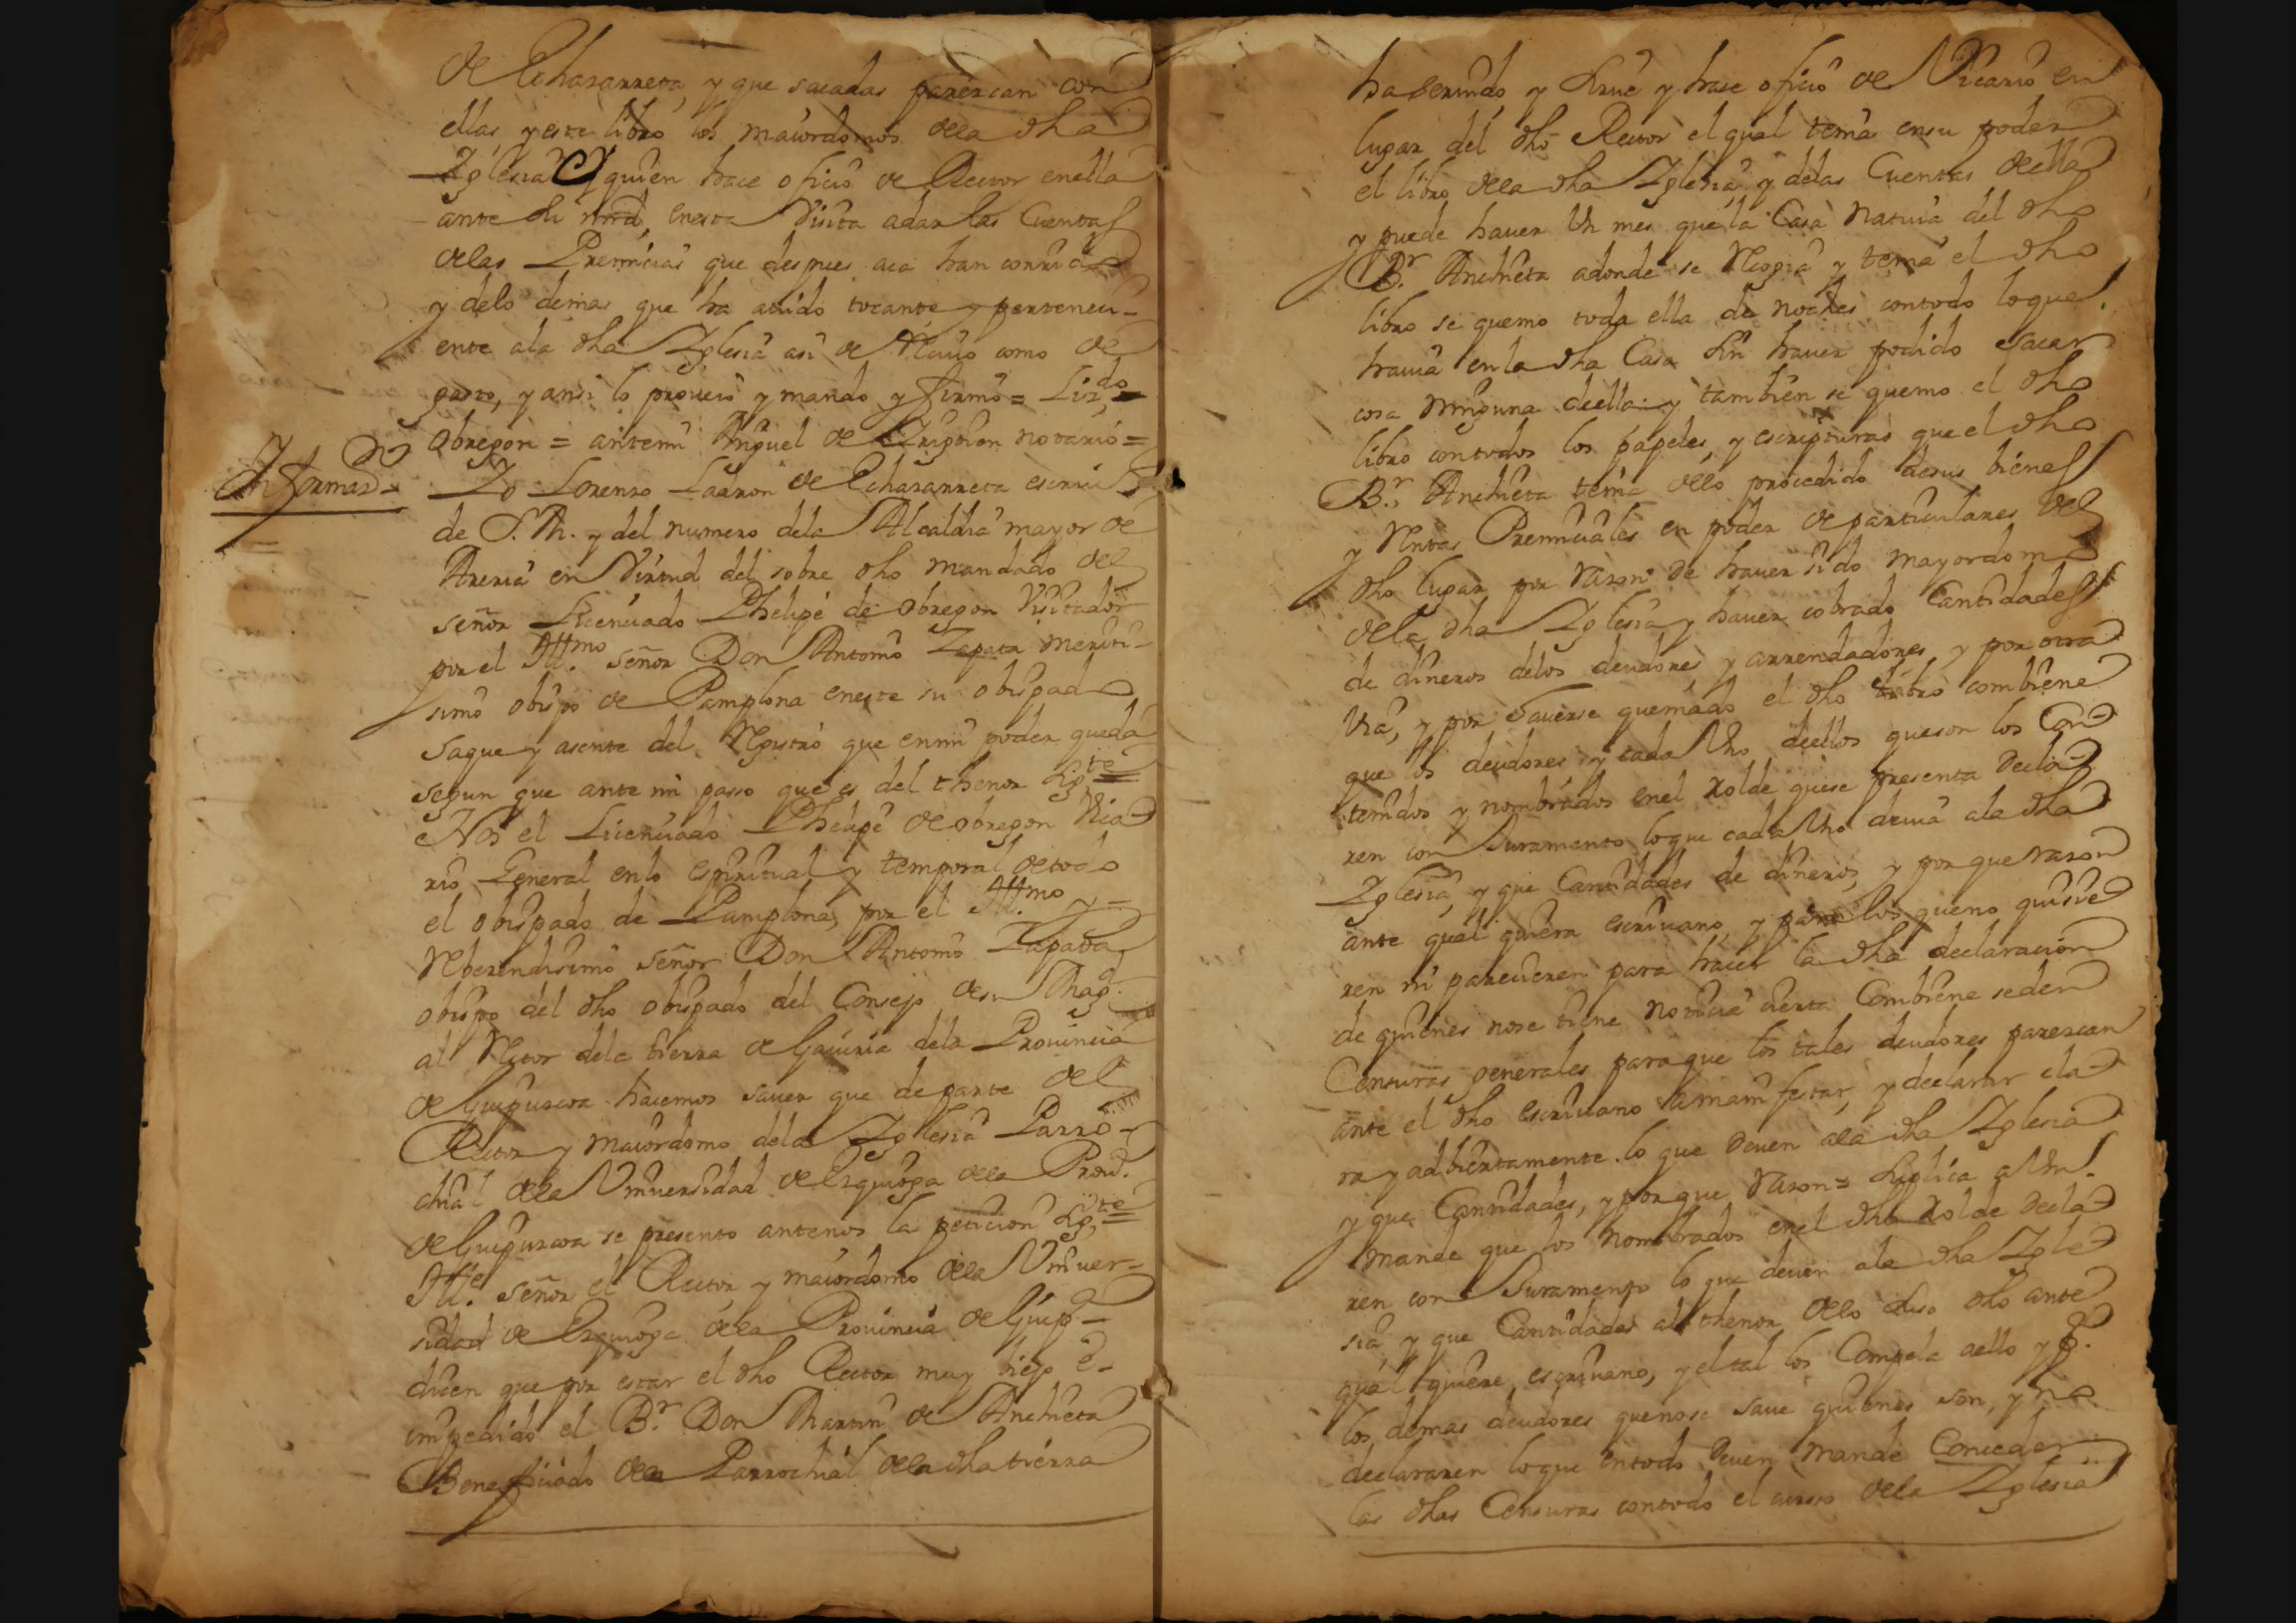 de Echazarreta, y que sacadas parezcan con
ellas y este libro los maiordomos dela dha
Iglesia y quien hace oficio de Rector en ella
ante su mrd, en esta Visita a dar las Cuentas
delas Premicias que despues aca han corrido
y delo demas que ha auido tocante y perteneci-
ente ala dha Iglesia asi de Reciuo como de
gasto, y ansi lo proueio y mando y firmo = Liz.do
Obregon = antemi Miguel de notario =
Informaz.on
Yo Lorenzo Ladron de Echazarreta escriu.o
de S. M. y del numero dela Alcaldia mayor de
Areria en Virtud del sobre dho mandado del
señor Licenciado Phelipe de Obregon Visitador
por el Ill.mo señor Don Antonio Zapata meriti-
simo obispo de Pamplona en este su obispado
saque y asente del Registro que en mi poder queda
segun que ante mi passo que es del thenor sig.te =
Nos el Licenciado Phelipe de Obregon Vica
rio General enlo espiritual y temporal de todo
el obispado de Pamplona, por el Ill.mo y =
Reberendisimo señor Don Antonio Zapata
obispo del dho obispado del Consejo de su Mag.d
al Retor dela tierra de Gauiria dela Prouincia
de Guipuzcoa hacemos sauer que de parte del
Rector y maiordomo dela Iglesia Parro-
chial dela Vniuersidad de Ezquioga dela Prou.a
de Guipuzcoa se presento antenos la peticion sig.te =
Ill.e señor el Rector y maiordomo dela Vniuer-
sidad de Ezquioga dela Prouincia de Guip.a
dicen que por estar el dho Rector muy biejo e-
impedido el B.r Don Martin de Anchieta
Beneficiado dela Parrochial dela dha tierra
ha seruido y sirue y hace oficio de Vicario en
lugar del dho Rector el qual tenia ensu poder
el libro dela dha Iglesia, y delas Cuentas della
y puede hauer Vn mes que la Casa Natiua del dho
B.r Anchieta adonde se Recogia y tenia el dho
libro se quemo toda ella de noches contodo loque
hauia enla dha Casa sin hauer podido sacar
cosa ninguna deella y tambien se quemo el dho
libro contodos los papeles, y escripturas que el dho
B.r Anchieta tenia delo procedido desus bienes
y Rentas Premiciales en poder de particulares del
dho lugar por razon de hauer sido mayordomo
dela dha Iglesia y hauer cobrado Cantidades
de dineros delos deudores y arrendadores, y por otra
Via, y por hauerse quemado el dho libro combiene
que los deudores y cada Vno deellos queson los Con
tenidos y nombrados enel rolde quese presenta Decla
ren con Juramento loque cada Vno deuia ala dha
Iglesia, y que Cantidades de dineros, y por que razon
ante qual quiera escriuano, y para los queno quisie
ren ni parecieren para hacer la dha declaracion
de quienes nose tiene noticia cierta Combiene seden
Censuras generales paraque los tales deudores parezcan
ante el dho escriuano amanifestar, y declarar cla
ra y adbiertamente lo que Deuen ala dha Iglesia
y que Cantidades, y porque razon = suplica a Vm.
mande que los Nombrados enel dho rolde Decla
ren con Juramento lo que deuen ala dha Igle
sia, y que Cantidades al thenor delo suso dho ante
qual quiere escriuano, y el tal los Compela aello y p.a
los demas deudores quenose saue quienes son, y no
declararen loque entodo Deuen mande Conceder
las dhas Censuras contodo el curso dela Iglesia